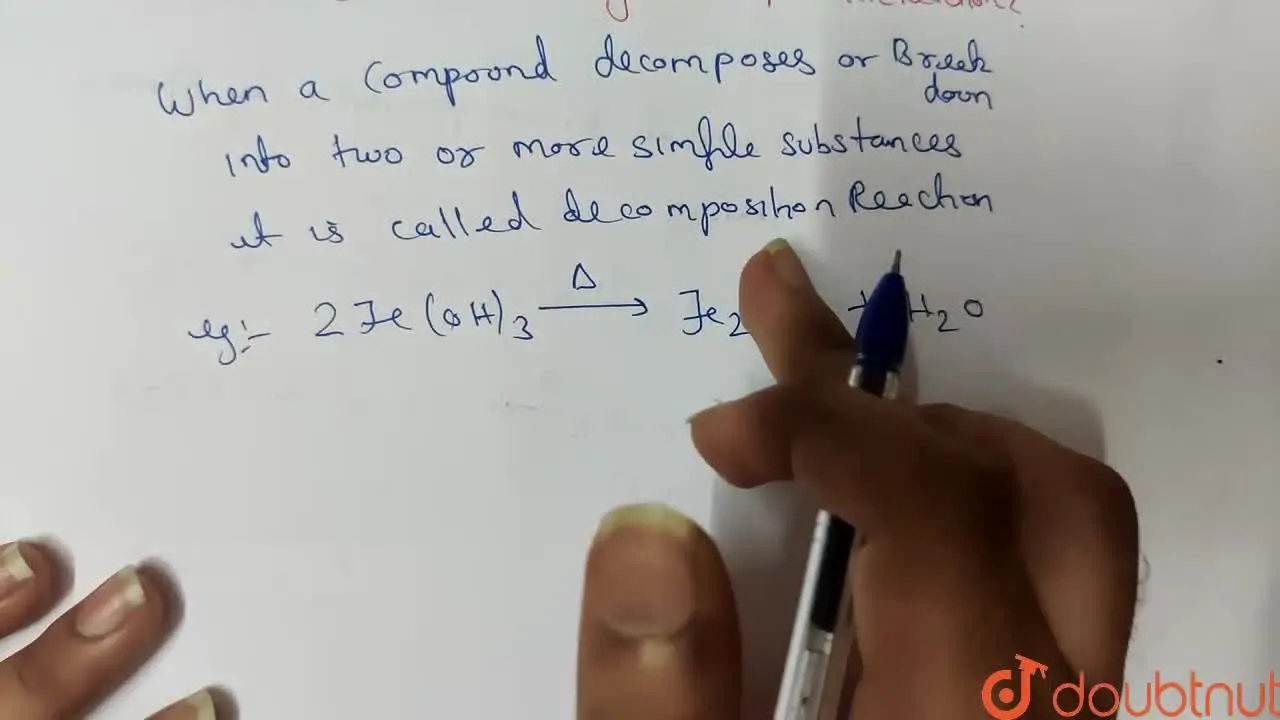 When a Compound decomposes or Break
down
into two or more simple substances
it is called decomposition Reaction
eg:- 2Fe(OH)3 Δ → Fe2 + H2O
doubtnut